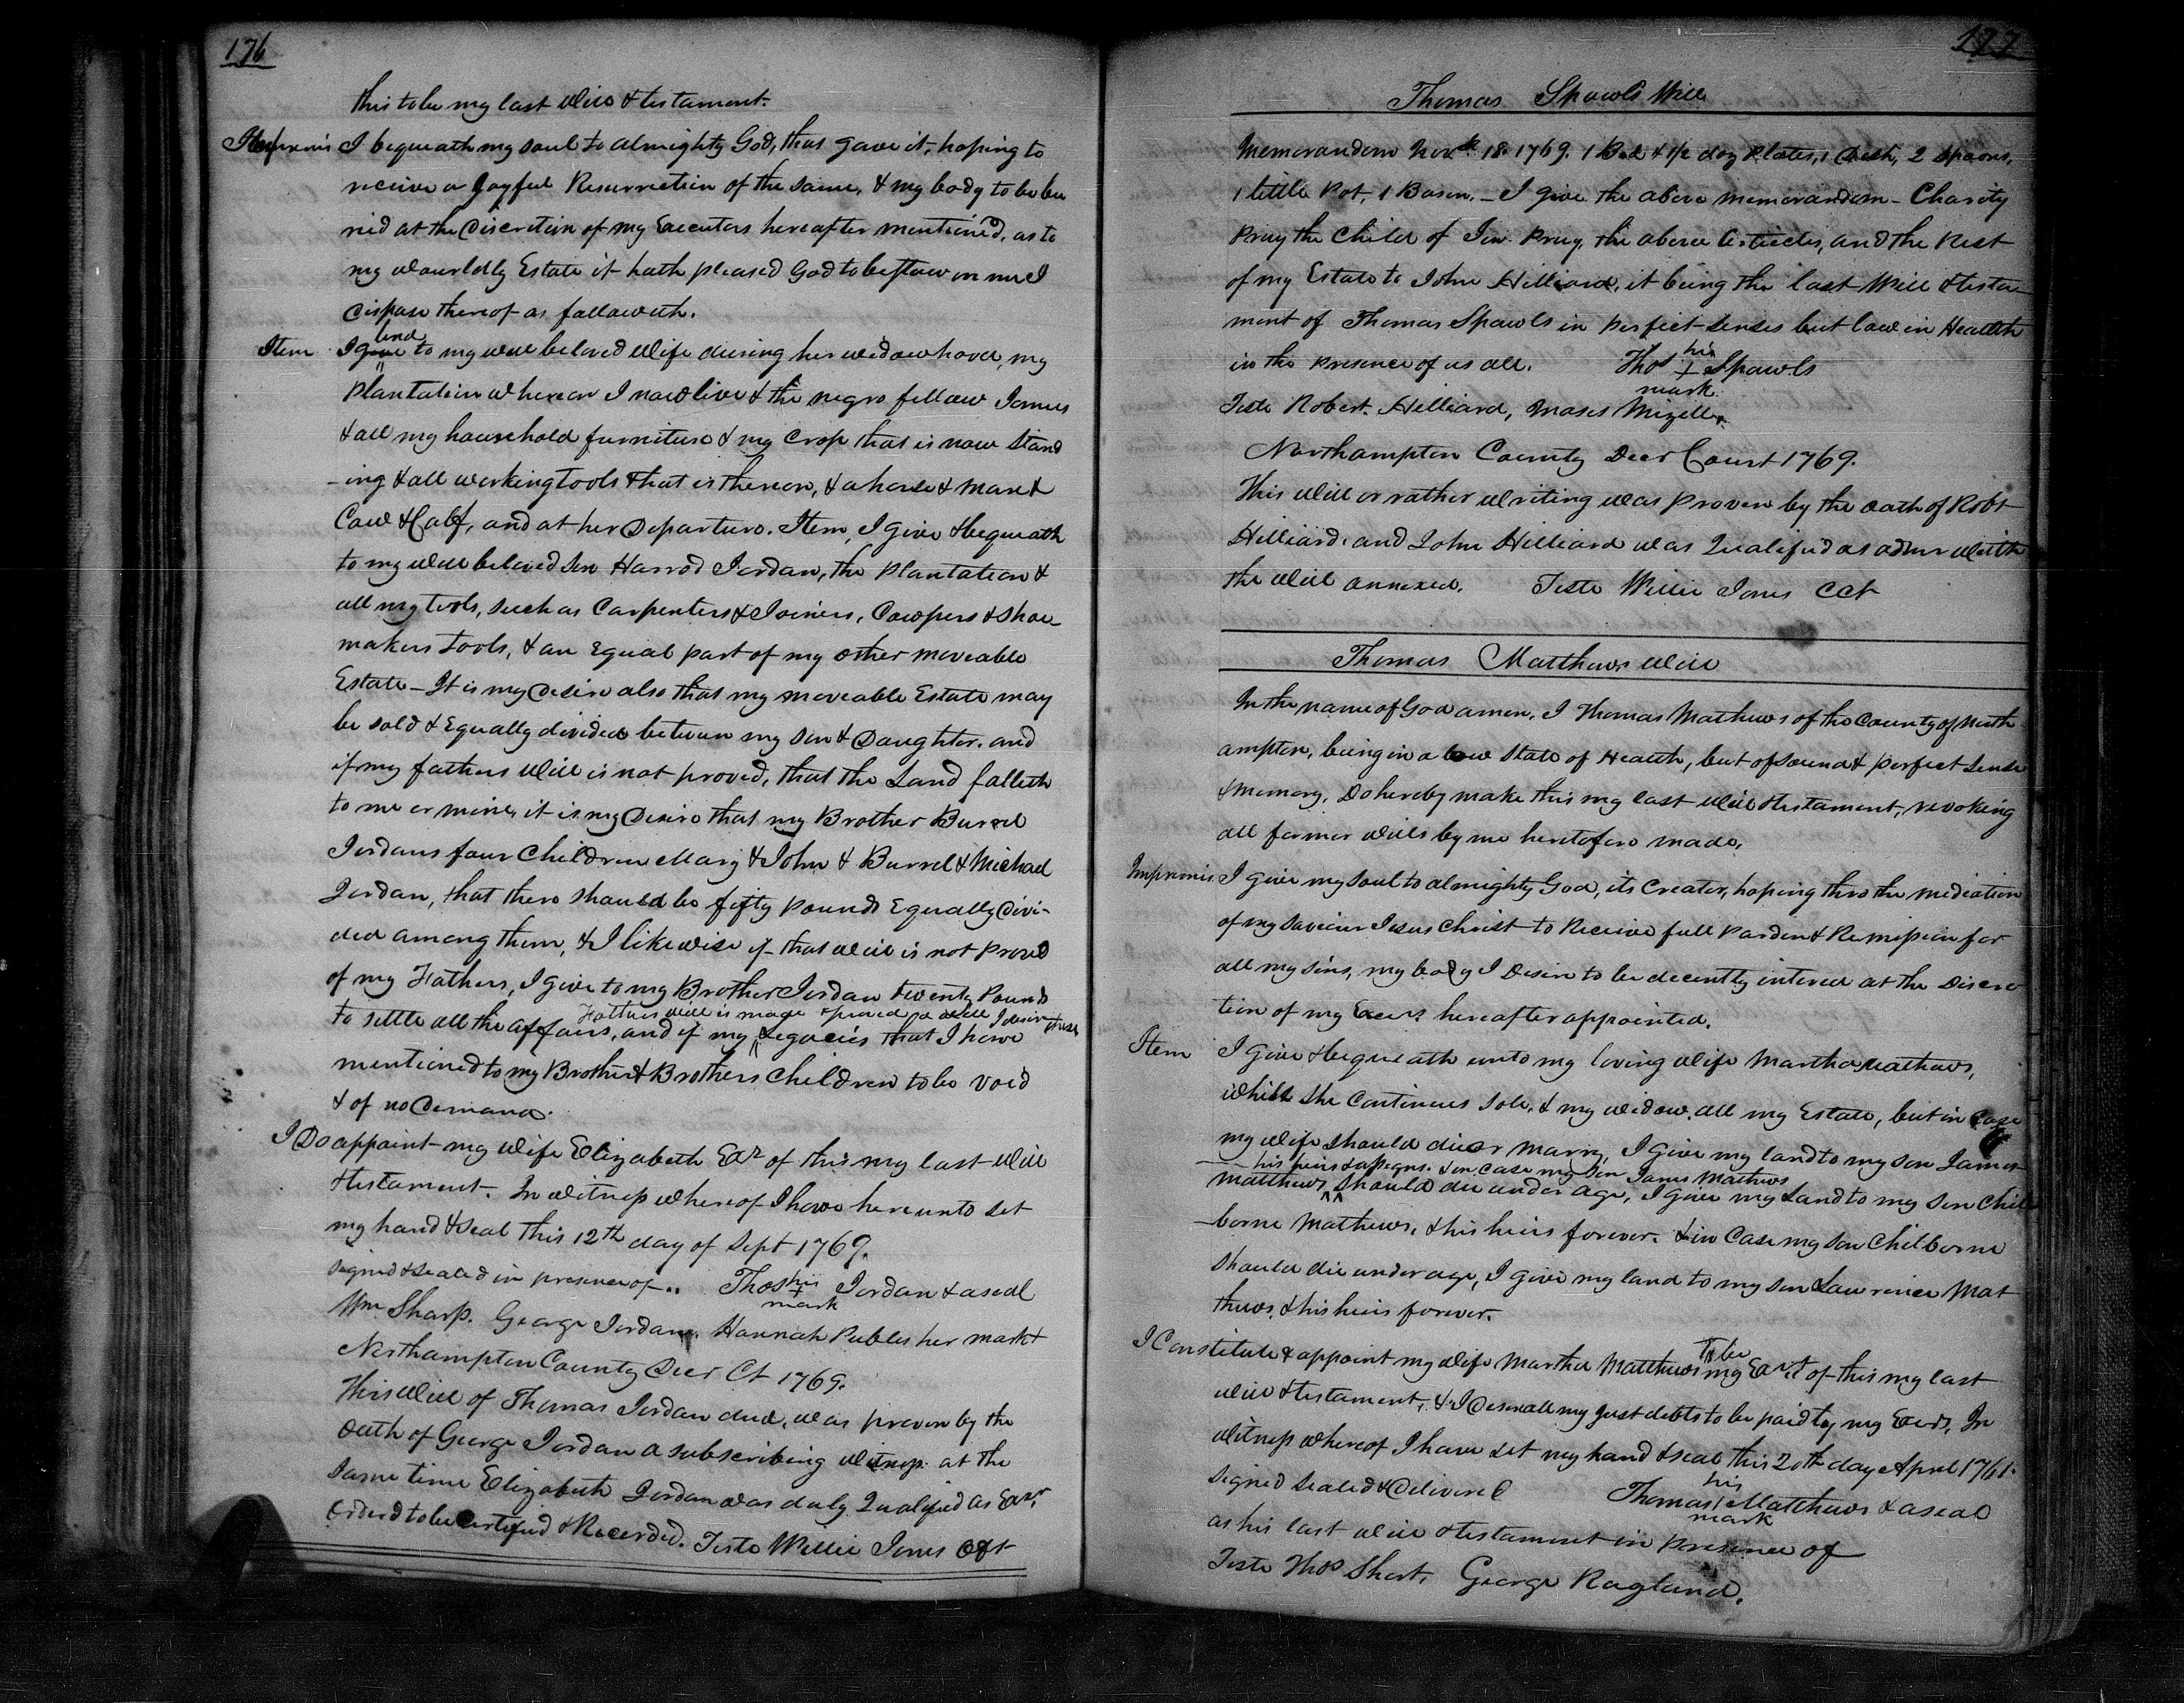 176
this to be my last Will & testament.
Impremis I bequeath my soul to almighty God, that gave it, hoping to
receive a Joyful Resurrection of the same, & my body to be bu
ried at the Discretion of my Executors hereafter mentioned, as to
my wourldly Estate it hath pleased God to bestow on me I
Dispose thereof as followeth.
Item I give to my well beloved Wife during her widowhood, my
lend
Plantation whereon I now live & the negro fellow James
& all my household furniture & my Crop that is now Stand
-ing & all working tools that is thereon, & a horse & mare &
Cow & Calf, and at her Departure. Item, I give & bequeath
to my well beloved Son Harrod Jordan, the Plantation &
all my tools, such as Carpenters & Joiners, Cowpers & Shoe
makers tools, & an Equal part of my other moveable
Estate - It is my Desire also that my moveable Estate may
be sold & Equally divided between my son & Daughter. and
if my fathers Will is not proved, that the Land falleth
to me or mine, it is my Desire that my Brother Burrel
Jordans four Children Mary & John & Burrel & Michael
Jordan, that there should be fifty pounds Equally Divi-
ded among them, & I likewise if that Will is not proved
of my Fathers, I give to my Brother Jordan twenty Pounds
Fathers Will is made & proved a Will I desire these
to settle all the affairs, and if my Legacies that I have
mentioned to my Brother & Brothers Children to be void
& of no Demand.
I Do appoint my Wife Elizabeth Exr of this my last Will
& testament. In Witness whereof I have hereunto set
my hand & seal this 12th day of Sept 1769.
signed & sealed in presence of .. Thos his + mark Jordan & a seal
Wm Sharp. George Jordan. Hannah Peebles her mark +
Northampton County Decr Ct 1769.
This Will of Thomas Jordan decd, was proven by the
Oath of George Jordan a subscribing Witness at the
same time Elizabeth Jordan was duly Qualified as Exr
Orderd to be Certified & Recorded. Teste Willie Jones CCt
177
Thomas Spawls Will
Memorandum Novr 18. 1769. 1 Bed & 1/2 doz Plates, 1 Dish, 2 Spoons,
1 little Pot, 1 Bason. - I give the above memorandum - Charity
Pruy the Child of Jno. Pruy, the above Articles, and the Rest
of my Estate to John Hilliard, it being the last Will & testa-
ment of Thomas Spawls in perfect senses but low in Health
in the presence of us all. Thos his + mark Spawls
Teste Robert Hilliard, Moses Mizelle.
Northampton County Decr Court 1769.
This Will or rather Writing was proven by the oath of Robt
Hilliard. and John Hilliard was Qualified as admr with
the Will annexed. Teste Willie Jones CCt
Thomas Matthews Will
In the name of God amen. I Thomas Mathews of the County of North
ampton, being in a low State of Health, but of sound & perfect Sense
& Memory, Do hereby make this my last Will & testament, revoking
all former Wills by me heretofore made.
Impremis. I give my Soul to almighty God, its Creator, hoping thro the mediation
of my Saviour Jesus Christ to Receive full Pardon & Remission for
all my sins, my body I Desire to be decently intered at the Discre
tion of my Execrs hereafter appointed.
Item I give & bequeath unto my loving Wife Martha Mathews,
whilst she Continues Sole, & my widow, all my Estate, but in Case
my Wife should die or marry, I give my land to my son James
his heirs & assigns. & in Case my Son James Mathews
Matthews should die under age, I give my Land to my Son Chil
-borne Mathews, & his heirs forever. & in Case my son Chilborne
should die under age, I give my land to my son Lawrence Mat
thews, & his heirs forever.
to be
I Constitute & appoint my Wife Martha Matthews my Exrt of this my last
Will & testament, & I Desire all my just debts to be paid by my Exers, In
Witness whereof I have set my hand & seal this 20th day April 1761.
signed sealed & Deliverd Thomas his mark Matthews & a seal
as his last Will & testament in presence of
Teste Thos Short, George Ragland.